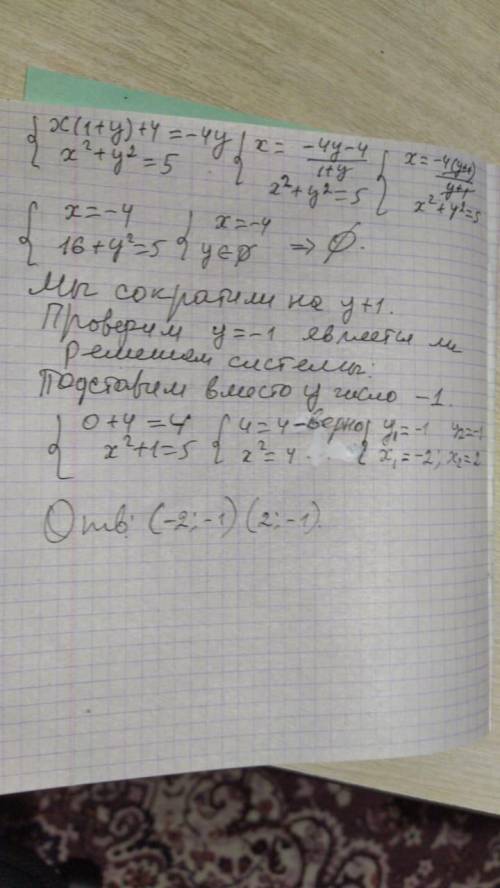 { x(1+y)+4=-4y { x= -4y-4/1+y { x= -4(y+1)/y+1
x²+y²=5 x²+y²=5 x²+y²=5
{ x=-4 { x=-4
16+y²=5 y∈∅ ⇒ ∅.
Мы сократили на y+1.
Проверим y=-1 является ли
решением системы:
Подставим вместо y число -1.
{ 0+4=4 { 4=4-верно { y₁=-1 y₂=-1
x²+1=5 x²=4 x₁=-2; x₂=2
Отв: (-2;-1) (2;-1).